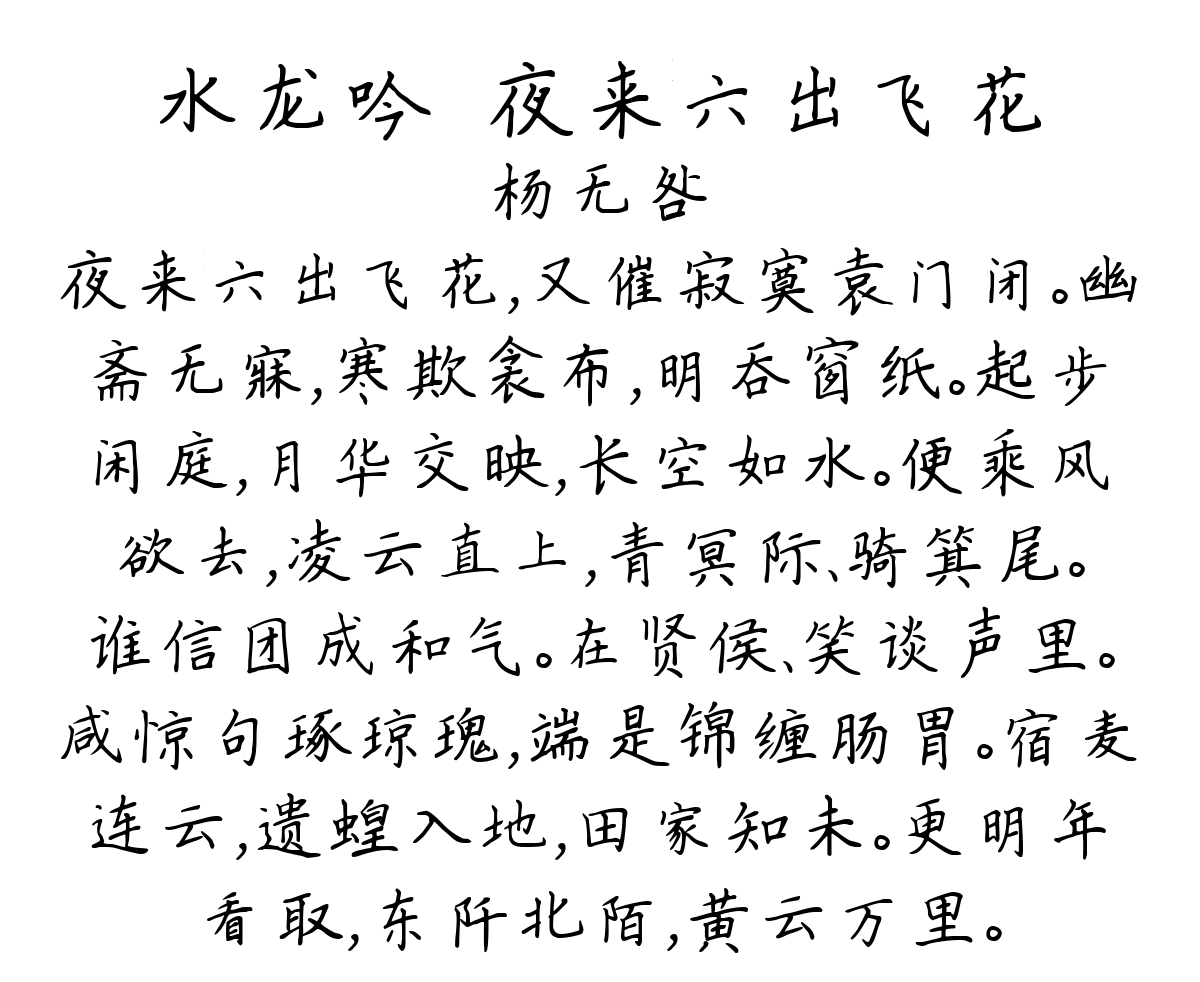 水龙吟 夜来六出飞花
杨无咎
夜来六出飞花,又催寂寞袁门闭。幽
斋无寐,寒欺衾布,明吞窗纸。起步
闲庭,月华交映,长空如水。便乘风
欲去,凌云直上,青冥际、骑箕尾。
谁信团成和气。在贤侯、笑谈声里。
咸惊句琢琼瑰,端是锦缠肠胃。宿麦
连云,遗蝗入地,田家知未。更明年
看取,东阡北陌,黄云万里。